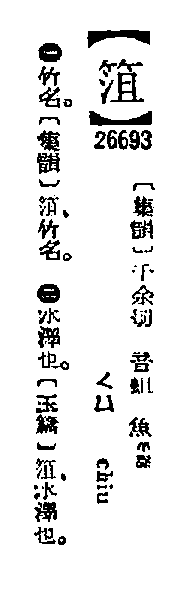 【】
26693
〔集韻〕千余切 音蛆 魚平聲
ㄑㄩ chiu
㊀竹名。〔集韻〕、竹名。㊁水澤也。〔玉篇〕、水澤也。